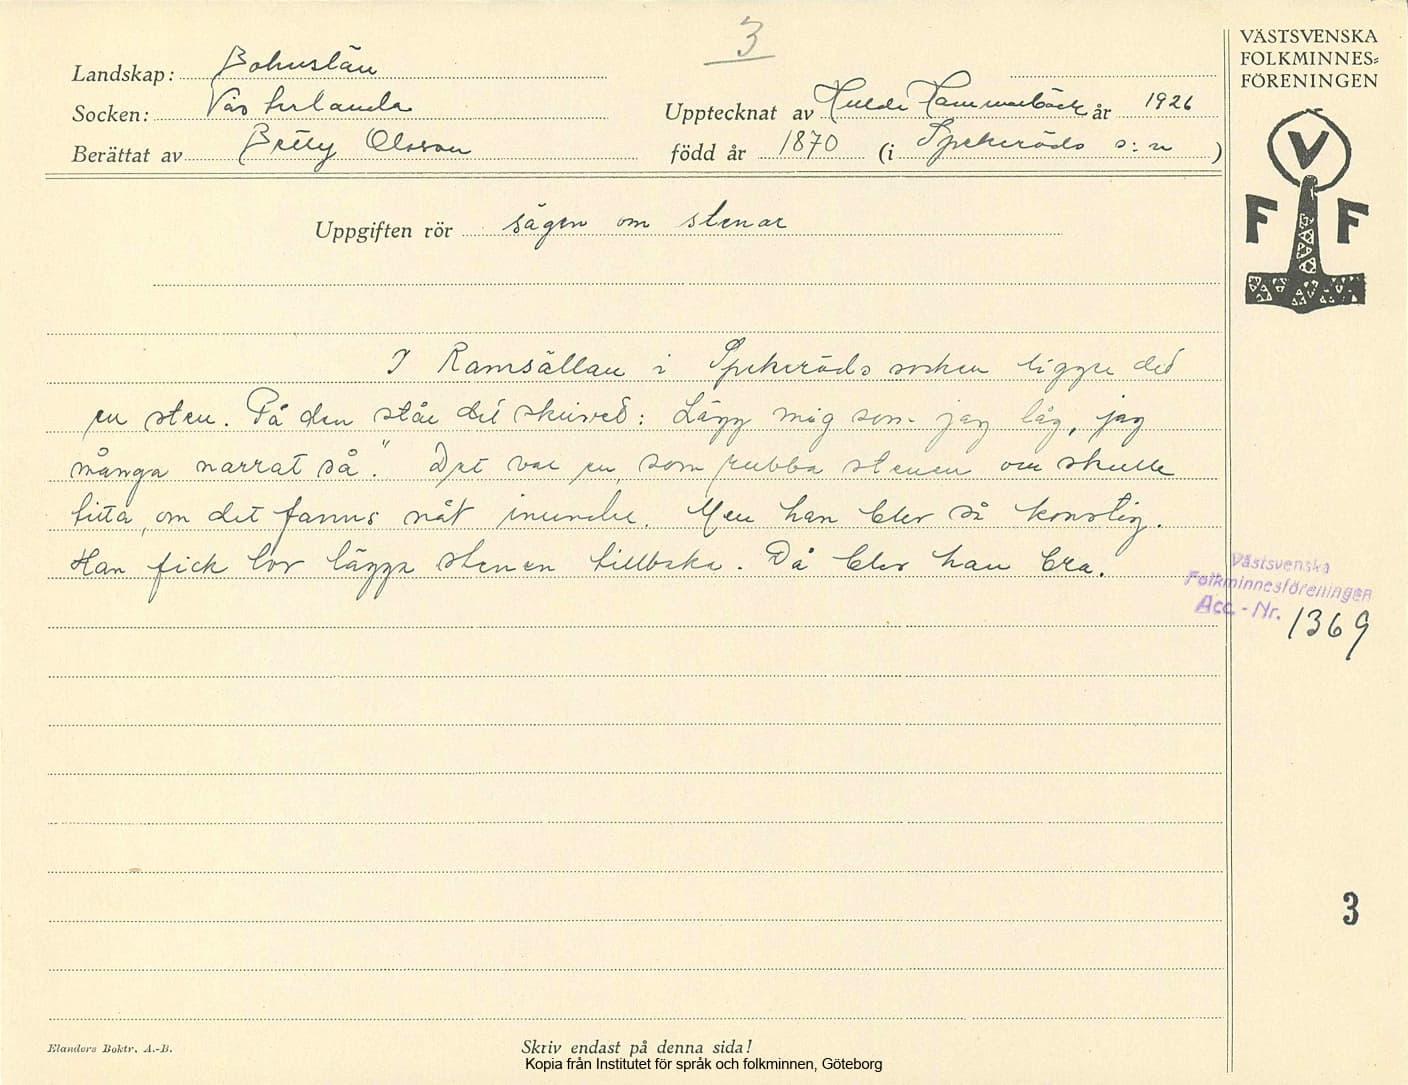 3
VÄSTSVENSKA
FOLKMINNES-
FÖRENINGEN
Landskap: Bohuslän
Socken: Väs
Upptecknat av Hulda Hammarbäck år 1926
Berättat av Betty Olsson
född år 1870 (i Spekeröds s:n)
V
F F
Uppgiften rör sägen om stenar
I Ramsällan i Spekeröds socken ligger det
en sten. På den står det skrivet: Lägg mig som jag låg, jag
många narrat så." Det var en, som rubba stenen om skulle
titta, om det fanns nåt inunder. Men han blev så konstig.
Han fick lov lägga stenen tillbaka. Då blev han bra.
Västsvenska
Folkminnesföreningen
Acc.-Nr. 1369
3
Elanders Boktr. A.-B.
Skriv endast på denna sida!
Kopia från Institutet för språk och folkminnen, Göteborg